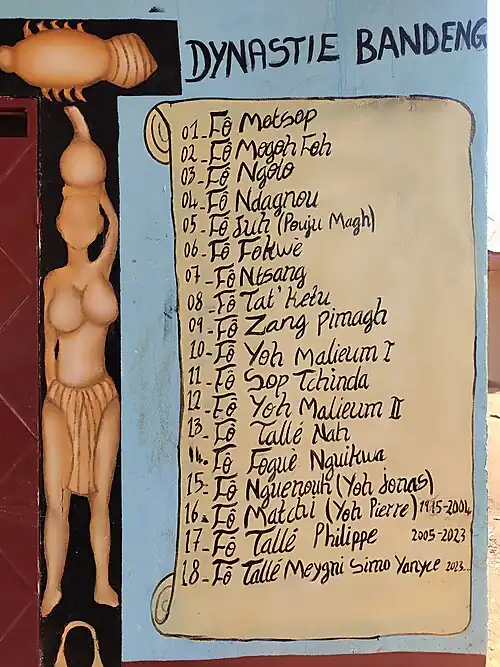 DYNASTIE BANDENG
01-Fô Motsop
02-Fô Mogoh Foh
03-Fô Ngolo
04-Fô Ndagnou
05-Fô Juh (Pouju Magh)
06-Fô Fokwè
07-Fô Ntsang
08-Fô Tat'Ketu
09-Fô Zang Pimagh
10-Fô Yoh Malieum I
11-Fô Sop Tchinda
12-Fô Yoh Malieum II
13-Fô Tallé Nah
14-Fô Foguè Nguikwa
15-Fô Nguenouh (Yoh Jonas)
16-Fô Matchi (Yoh Pierre)
17-Fô Tallé Philippe 2005-2023
18-Fô Tallé Meygni Simo Yanyce 2023...